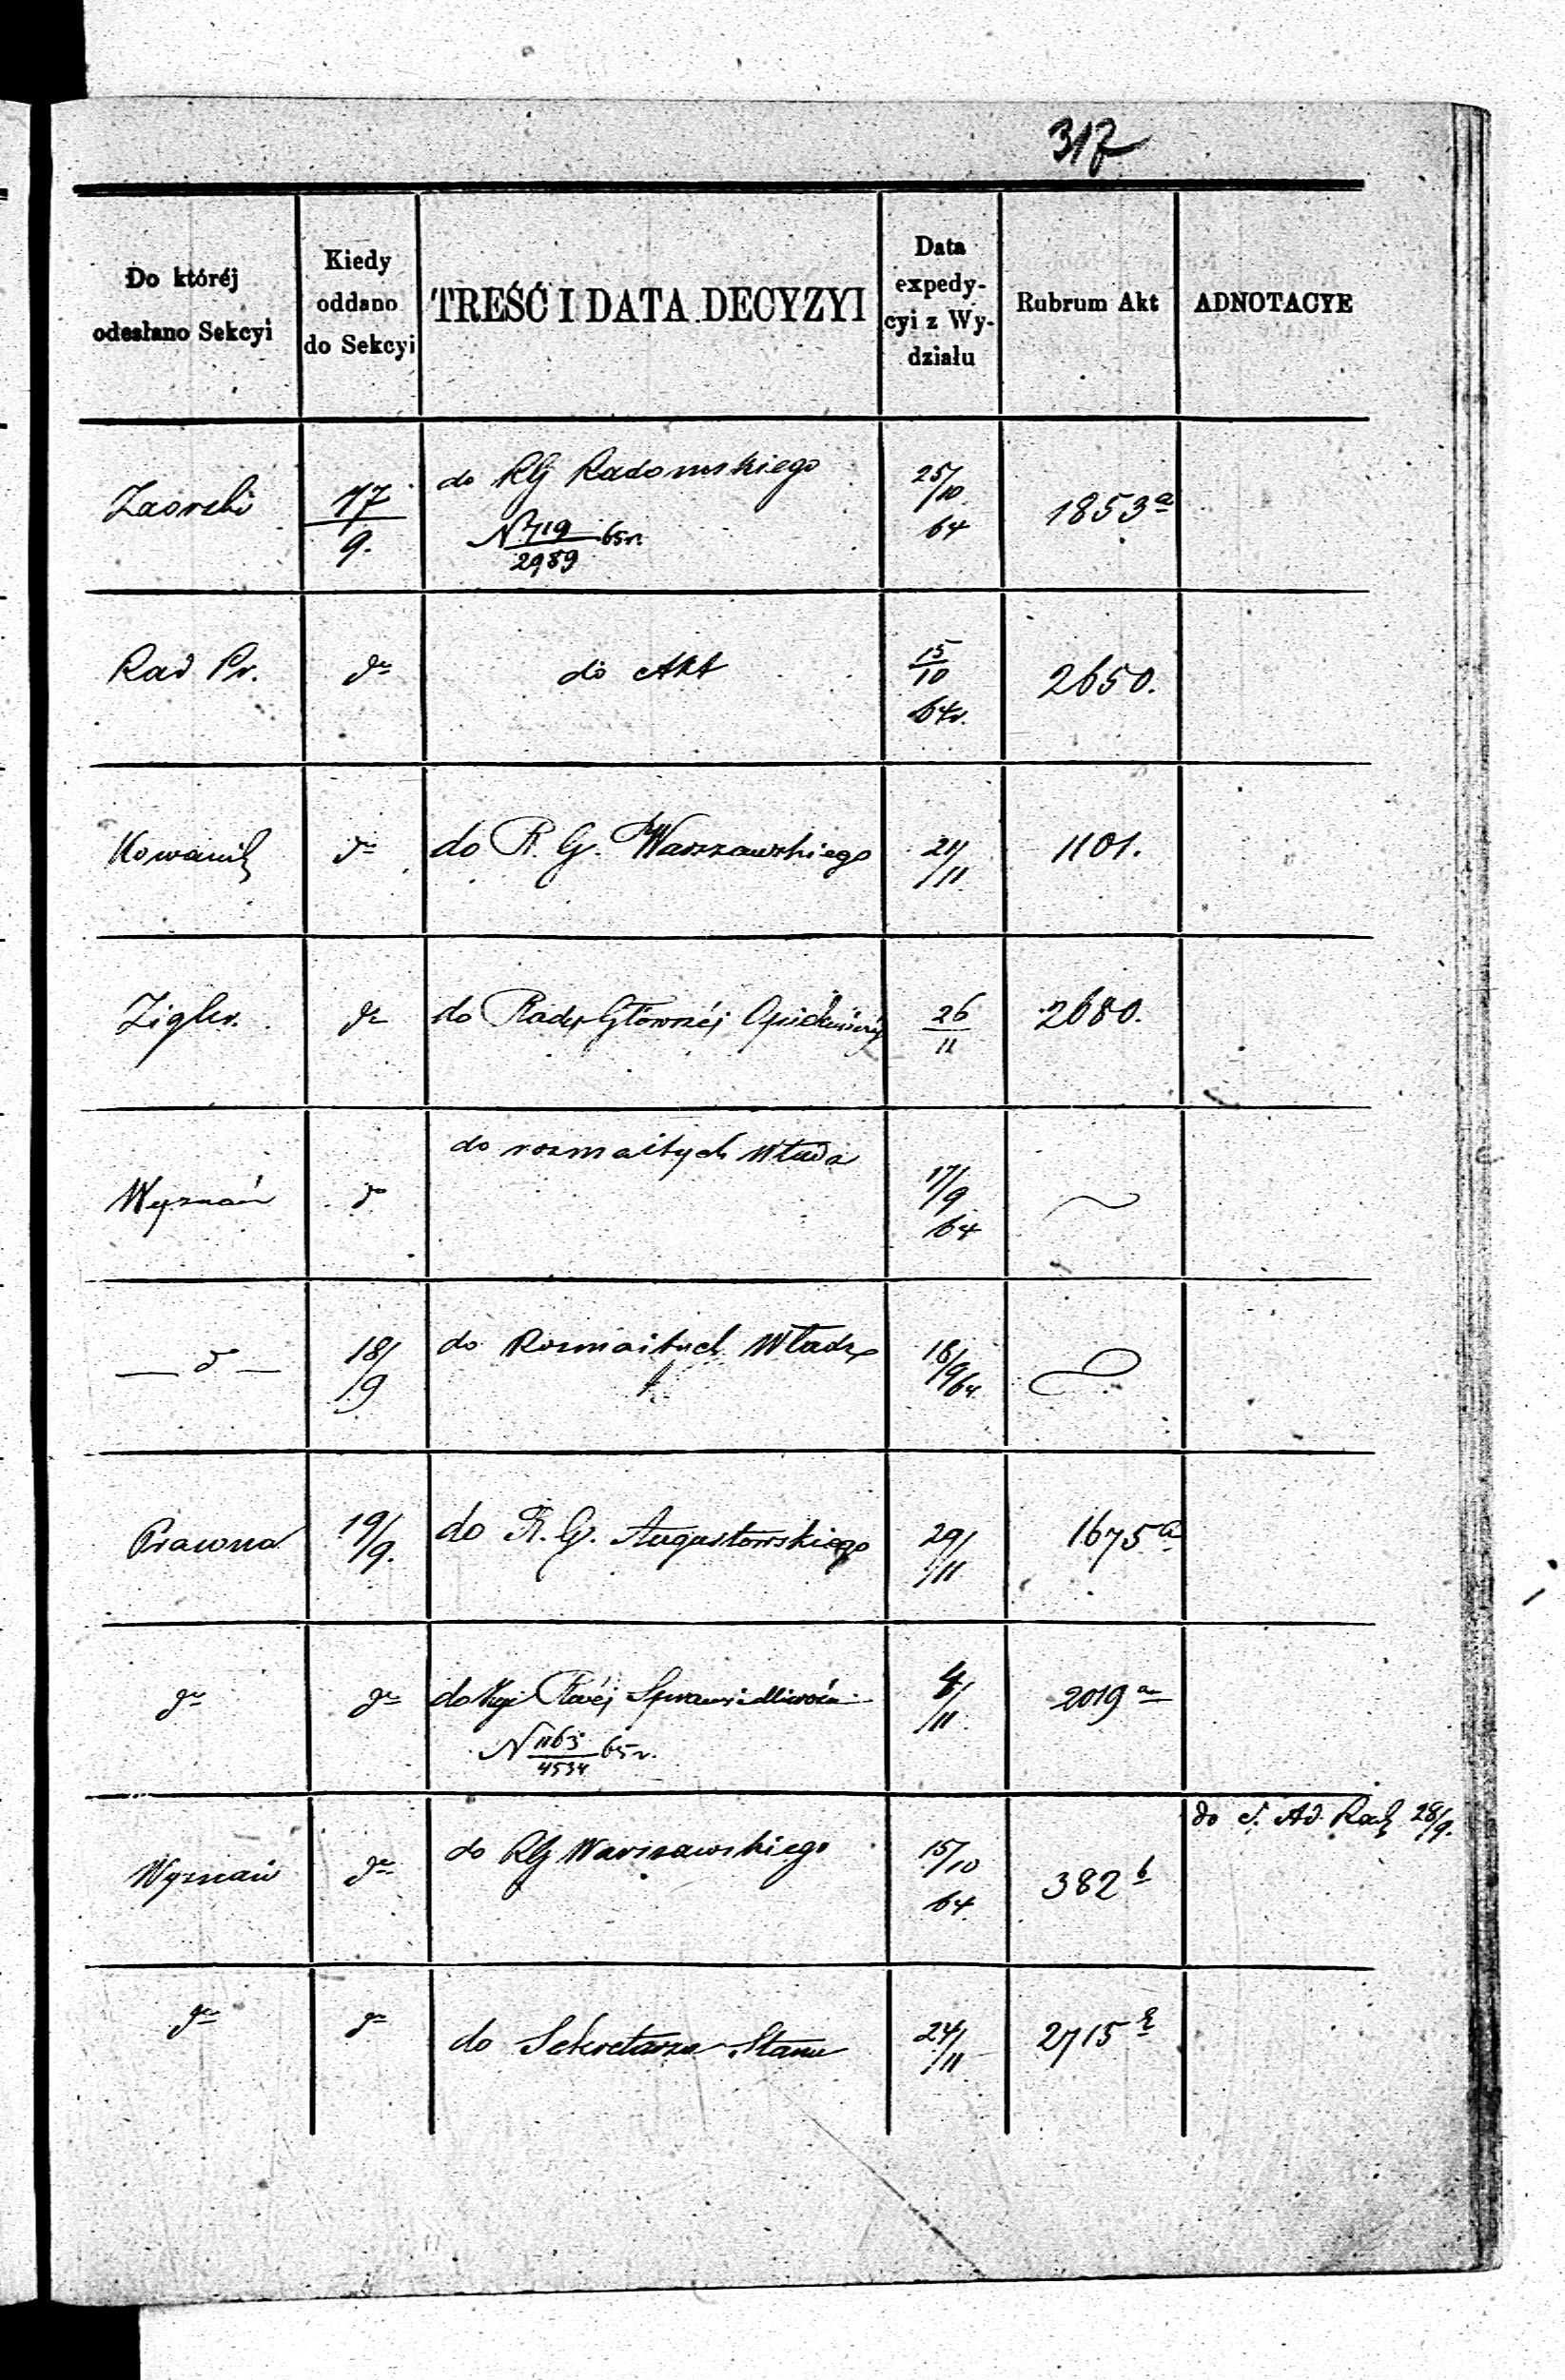 317
Do któréj odesłano Sekcyi | Kiedy oddano do Sekcyi | TREŚĆ I DATA DECYZYI | Data expedycyi z Wydziału | Rubrum Akt | ADNOTACYE
17/9. | do RG Radomskiego | 25/10 64 | 1853 a
N 719/2989 65r.
Rad Pr. | do | do Akt | 15/10 64r. | 2650.
do | do R. G. Warszawskiego | 21/11 | 1101.
Zigler. | do | do Rady Głównéj Opiekuńczéj | 26/11 | 2680.
Wyznań | do | do rozmaitych Władz | 17/9 64
— do — | 18/9 | do Rozmaitych Władz | 18/9 64
Prawna | 19/9. | do R. G. Augustowskiego | 29/11 | 1675 a
do | do | do Sprawiedliwości | 4/11 | 2019 a
N 1163/4534 65r.
Wyznań | do | do RG Warszawskiego | 15/10 64 | 382 b | do Ad. 28/9.
do | do | do Sekretarza Stanu | 24/11 | 2715